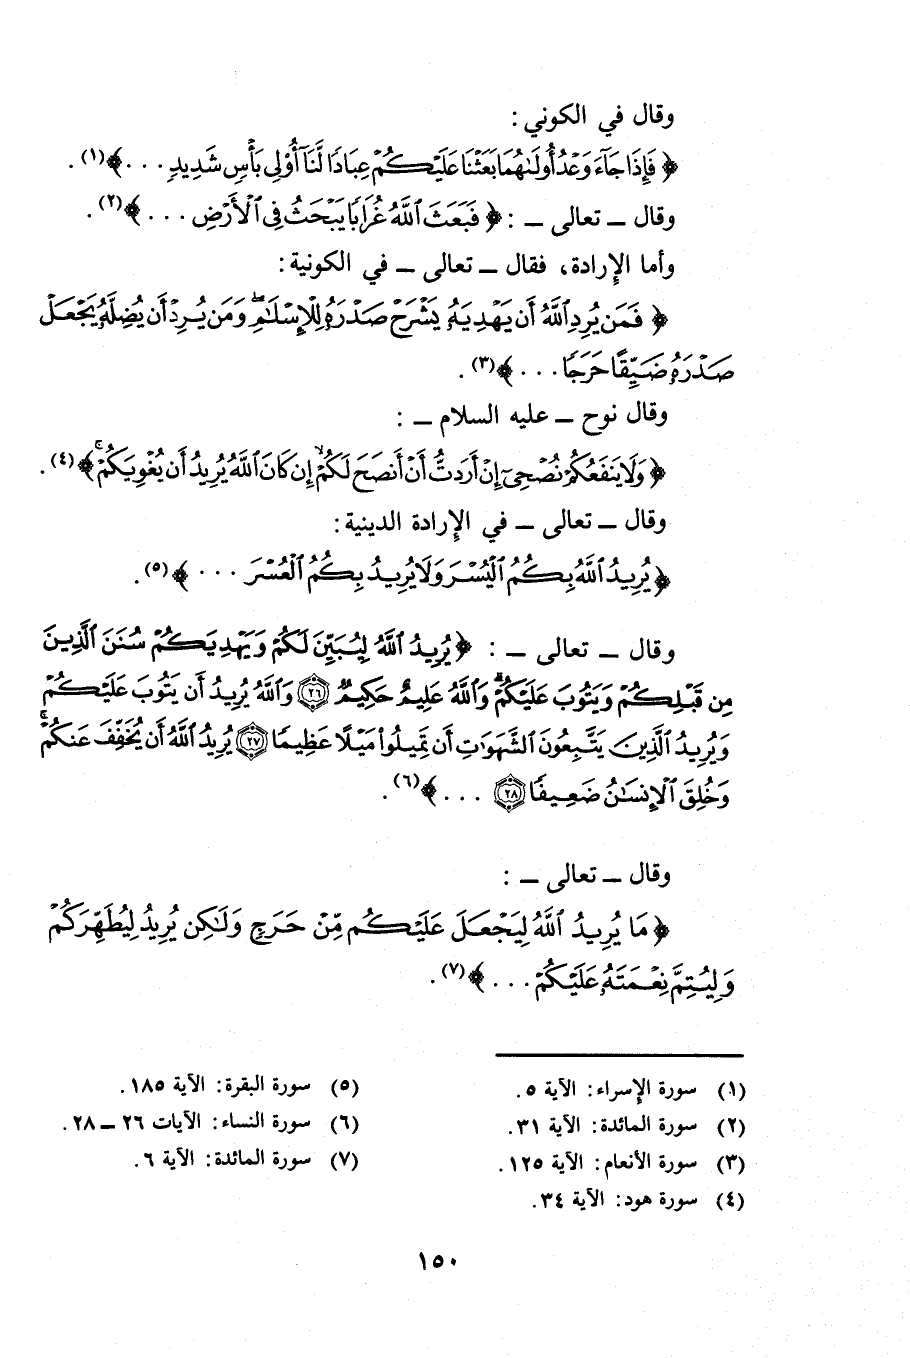 وقال في الكوني :
﴿ فَإِذَا جَآءَ وَعْدُ أُولَىٰهُمَا بَعَثْنَا عَلَيْكُمْ عِبَادًا لَّنَآ أُوْلِى بَأْسٍ شَدِيدٍ . . . ﴾(١) .
وقال ــ تعالى ــ : ﴿ فَبَعَثَ ٱللَّهُ غُرَابًا يَبْحَثُ فِى ٱلْأَرْضِ . . . ﴾(٢) .
وأما الإِرادة، فقال ــ تعالى ــ في الكونية :
﴿ فَمَن يُرِدِ ٱللَّهُ أَن يَهْدِيَهُۥ يَشْرَحْ صَدْرَهُۥ لِلْإِسْلَٰمِ ۖ وَمَن يُرِدْ أَن يُضِلَّهُۥ يَجْعَلْ
صَدْرَهُۥ ضَيِّقًا حَرَجًا . . . ﴾(٣) .
وقال نوح ــ عليه السلام ــ :
﴿ وَلَا يَنفَعُكُمْ نُصْحِىٓ إِنْ أَرَدتُّ أَنْ أَنصَحَ لَكُمْ إِن كَانَ ٱللَّهُ يُرِيدُ أَن يُغْوِيَكُمْ ۚ ﴾(٤) .
وقال ــ تعالى ــ في الإِرادة الدينية :
﴿ يُرِيدُ ٱللَّهُ بِكُمُ ٱلْيُسْرَ وَلَا يُرِيدُ بِكُمُ ٱلْعُسْرَ . . . ﴾(٥) .
وقال ــ تعالى ــ : ﴿ يُرِيدُ ٱللَّهُ لِيُبَيِّنَ لَكُمْ وَيَهْدِيَكُمْ سُنَنَ ٱلَّذِينَ
مِن قَبْلِكُمْ وَيَتُوبَ عَلَيْكُمْ ۗ وَٱللَّهُ عَلِيمٌ حَكِيمٌ ۝٢٦ وَٱللَّهُ يُرِيدُ أَن يَتُوبَ عَلَيْكُمْ
وَيُرِيدُ ٱلَّذِينَ يَتَّبِعُونَ ٱلشَّهَوَٰتِ أَن تَمِيلُوا۟ مَيْلًا عَظِيمًا ۝٢٧ يُرِيدُ ٱللَّهُ أَن يُخَفِّفَ عَنكُمْ ۚ
وَخُلِقَ ٱلْإِنسَٰنُ ضَعِيفًا ۝٢٨ . . . ﴾(٦) .
وقال ــ تعالى ــ :
﴿ مَا يُرِيدُ ٱللَّهُ لِيَجْعَلَ عَلَيْكُم مِّنْ حَرَجٍ وَلَٰكِن يُرِيدُ لِيُطَهِّرَكُمْ
وَلِيُتِمَّ نِعْمَتَهُۥ عَلَيْكُمْ . . . ﴾(٧) .
(١) سورة الإِسراء: الآية ٥ .
(٢) سورة المائدة: الآية ٣١.
(٣) سورة الأنعام: الآية ١٢٥ .
(٤) سورة هود: الآية ٣٤.
(٥) سورة البقرة: الآية ١٨٥ .
(٦) سورة النساء: الآيات ٢٦ ــ ٢٨ .
(٧) سورة المائدة: الآية ٦ .
١٥٠